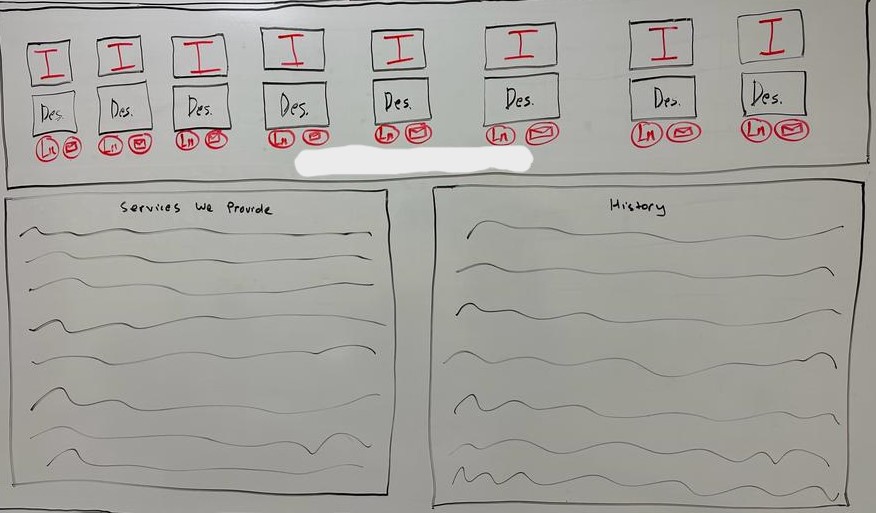 I I I I I I I I
Des. Des. Des. Des. Des. Des. Des. Des.
Ln Ln Ln Ln Ln Ln Ln Ln
Services We Provide
History